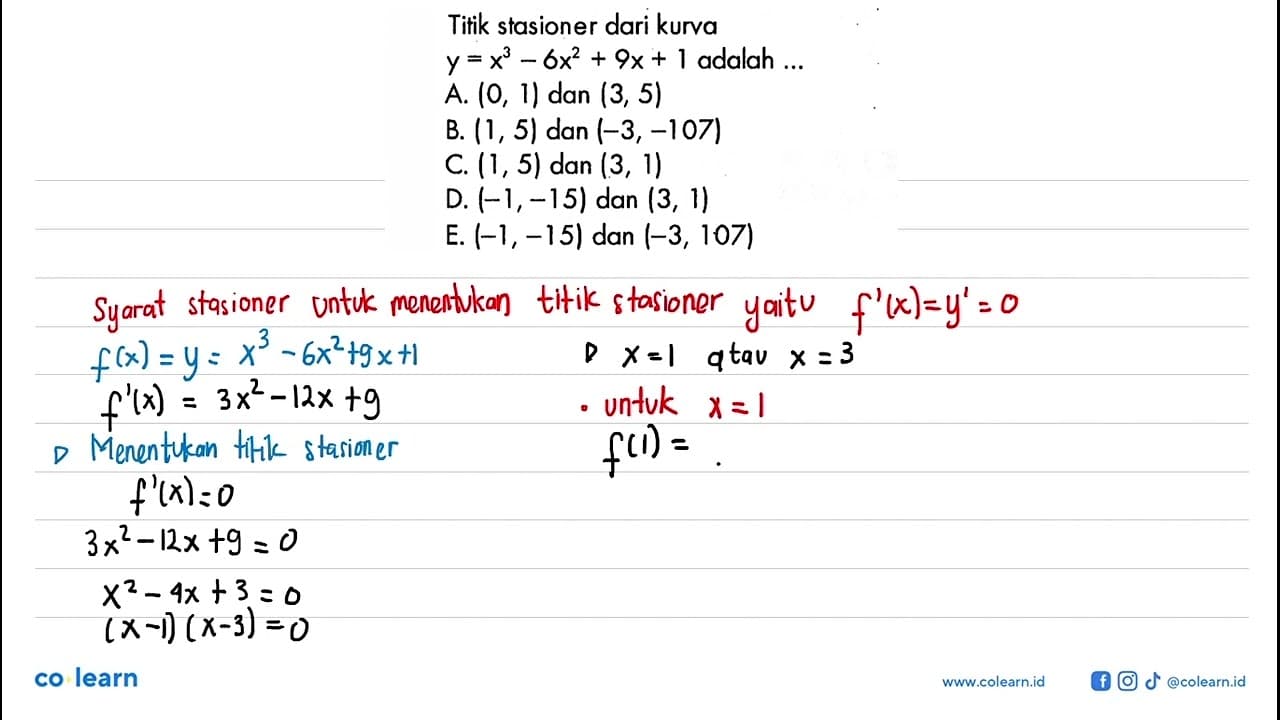 Titik stasioner dari kurva
y = x³ – 6x² + 9x + 1 adalah ...
A. (0, 1) dan (3, 5)
B. (1, 5) dan (–3, –107)
C. (1, 5) dan (3, 1)
D. (–1, –15) dan (3, 1)
E. (–1, –15) dan (–3, 107)
Syarat stasioner untuk menentukan titik stasioner yaitu f'(x)=y'=0
f(x) = y = x³ – 6x²+9x+1
f'(x) = 3x² – 12x + 9
▷ Menentukan titik stasioner
f'(x) = 0
3x² – 12x + 9 = 0
x² – 4x + 3 = 0
(x–1) (x–3) = 0
▷ x = 1 atau x = 3
• untuk x = 1
f(1) =
co learn
www.colearn.id
@colearn.id